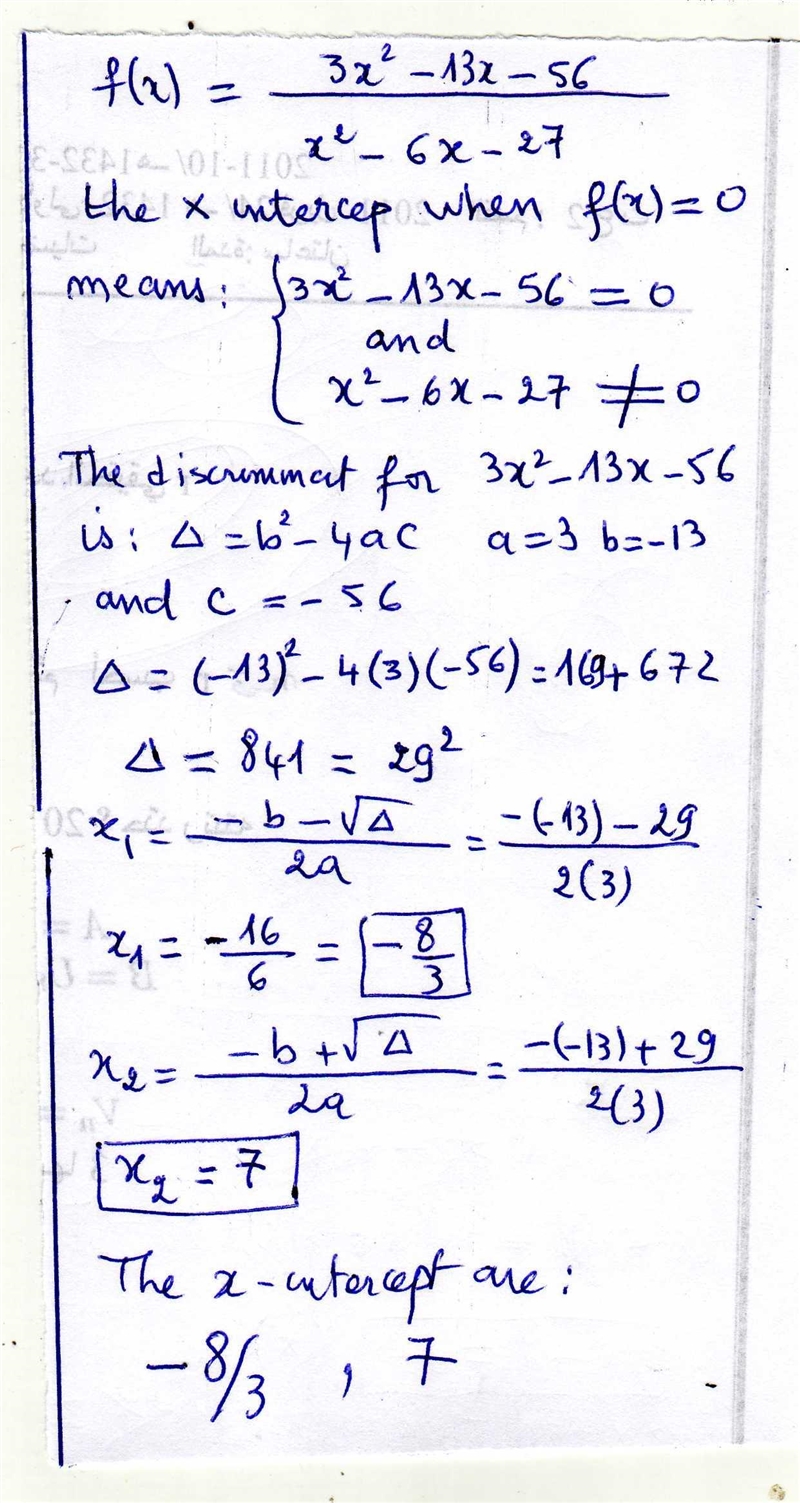 f(x) = (3x² - 13x - 56) / (x² - 6x - 27)
the x intercep when f(x) = 0
means: { 3x² - 13x - 56 = 0
and
x² - 6x - 27 ≠ 0
The discrimmat for 3x² - 13x - 56
is: Δ = b² - 4ac a = 3 b = -13
and c = -56
Δ = (-13)² - 4(3)(-56) = 169 + 672
Δ = 841 = 29²
x₁ = (-b - √Δ) / 2a = (-(-13) - 29) / 2(3)
x₁ = -16/6 = -8/3
x₂ = (-b + √Δ) / 2a = (-(-13) + 29) / 2(3)
x₂ = 7
The x-intercept are:
-8/3 , 7